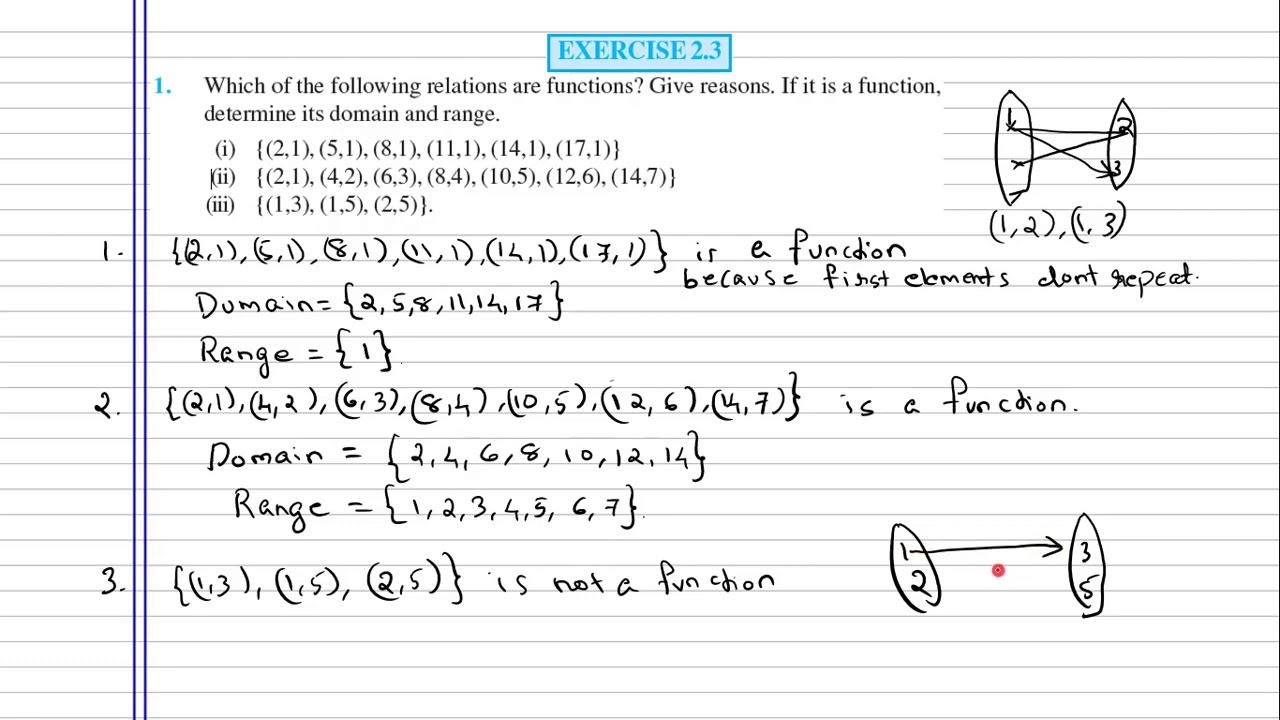 EXERCISE 2.3
1. Which of the following relations are functions? Give reasons. If it is a function,
determine its domain and range.
(i) {(2,1), (5,1), (8,1), (11,1), (14,1), (17,1)}
(ii) {(2,1), (4,2), (6,3), (8,4), (10,5), (12,6), (14,7)}
(iii) {(1,3), (1,5), (2,5)}.
1 2
3
(1,2),(1,3)
1. {(2,1),(5,1),(8,1),(11,1),(14,1),(17,1)} is a function
because first elements dont repeat.
Domain = {2,5,8,11,14,17}
Range = {1}.
2. {(2,1),(4,2),(6,3),(8,4),(10,5),(12,6),(14,7)} is a function.
Domain = {2,4,6,8,10,12,14}
Range = {1,2,3,4,5,6,7}.
1 3
2 5
3. {(1,3),(1,5),(2,5)} is not a function